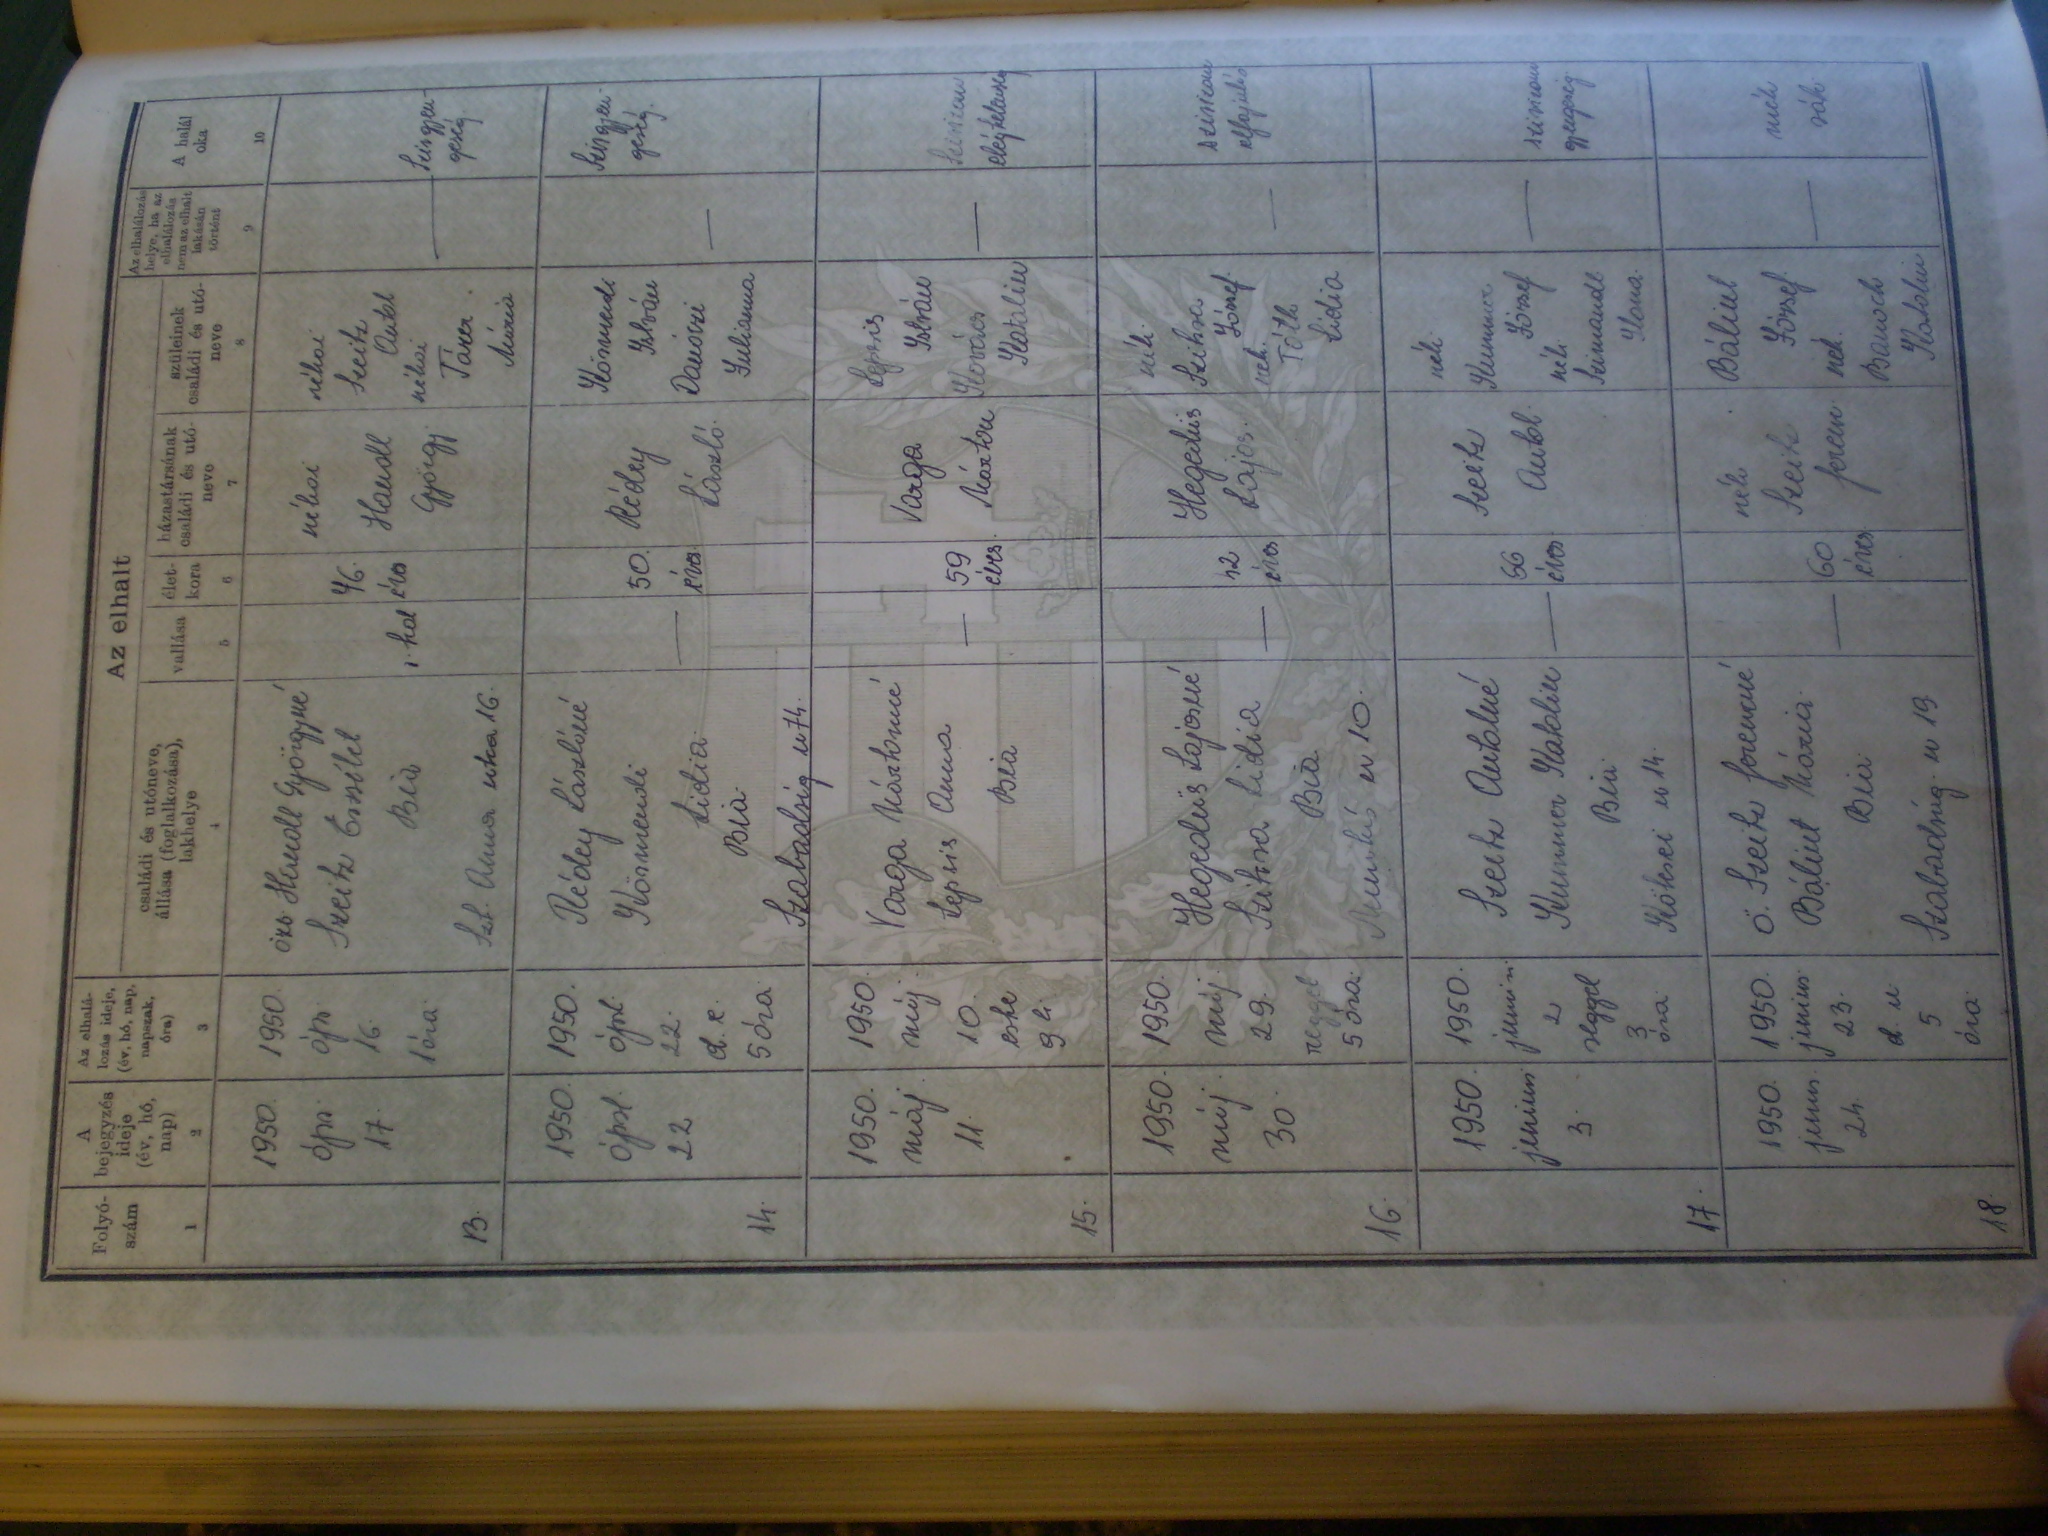 Az elhalt
Folyó-
szám
1
A
bejegyzés
ideje
(év, hó,
nap)
2
Az elhalá-
lozás ideje,
(év, hó, nap,
napszak,
óra)
3
családi és utóneve,
állása (foglalkozása),
lakhelye
4
vallása
5
élet-
kora
6
házastársának
családi és utó-
neve
7
szüleinek
családi és utó-
neve
8
Az elhalálozás
helye, ha az
elhalálozás
nem az elhalt
lakásán
történt
9
A halál
oka
10
13.
1950.
ápr.
17.
1950.
ápr.
16.
1 óra.
özv Handl Györgyné
Szeitz Erzsébet
Bia
Szt. Anna utca 16.
r. kat
46.
éves
néhai
Handl
György
néhai
Szeitz
Antal
néhai
Mária
—
Szívgyen-
geség.
14.
1950.
ápril.
22
1950.
ápril.
22.
d. e.
5 óra
Rédey Lászlóné
Körmendi
Lidia.
Bia.
Szabadság u 74.
—
50.
éves.
Rédey
László.
Körmendi
István
Julianna
—
Szívgyen-
geség.
15.
1950.
máj.
11.
1950.
máj.
10.
este
9 h.
Varga Mártonné
Lepsis Anna
Bia
—
59
éves.
Varga
Márton
Lepsis
István
Kovács
Katalin
—
16.
1950.
máj.
30.
1950.
máj.
29.
reggel
5 óra.
Hegedüs Lajosné
Szikra Lidia
Bia.
Munkás u 10.
—
éves
Hegedüs
Lajos.
néh.
Szikra
József.
néh.
Tóth
Lidia
—
17.
1950.
junius
3.
1950.
junius.
2
reggel
3
óra.
Szeitz Antalné
Kummer Katalin
Bia.
u 14.
—
66
éves
Szeitz
Antal.
néh
Kummer
József
néh.
Ilona.
—
18.
1950.
junius.
24.
1950.
junius.
23.
d. u.
5
óra.
ö. Szeitz Ferencné
Bálint Mária.
Bia
Szabadság u 19
—
60
éves.
néh.
Szeitz
Ferenc.
Bálint
József.
néh.
Katalin
—
méh
rák.